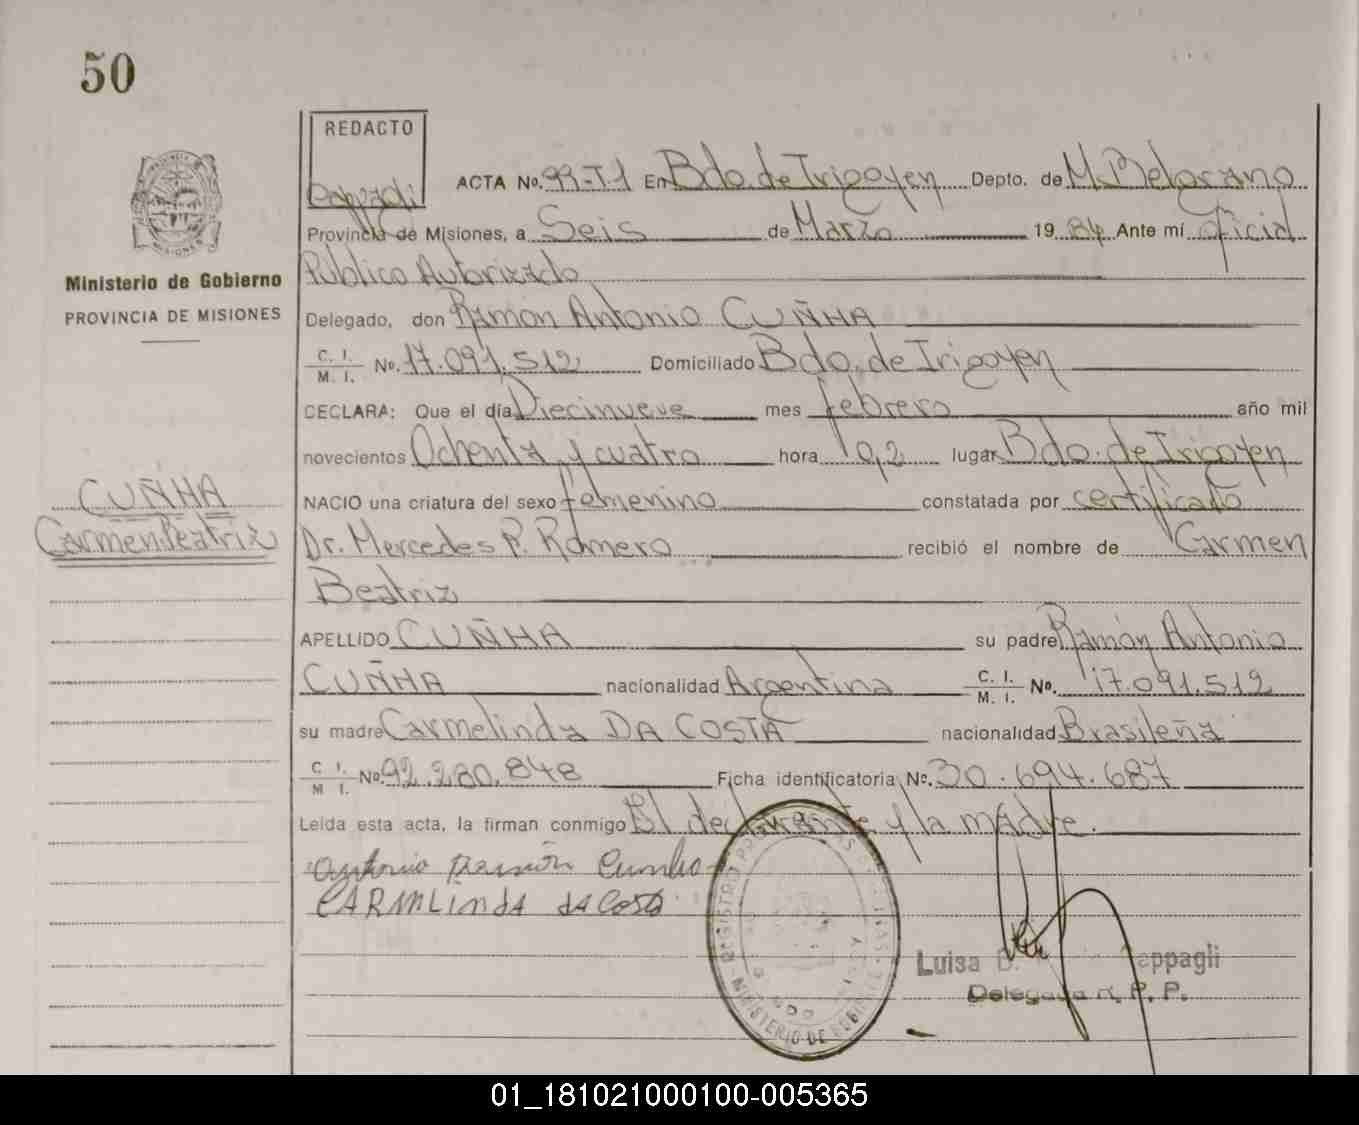 50
REDACTO
Cappagli
ACTA No. 99-T1 En Bdo. de Irigoyen Depto. de M. Belgrano
Provincia de Misiones, a Seis de Marzo 1984 Ante mí oficial
Público Autorizado
Ministerio de Gobierno
PROVINCIA DE MISIONES
Delegado, don Ramón Antonio CUÑHA
C. I. / M. I. No. 17.091.512 Domiciliado Bdo. de Irigoyen
DECLARA: Que el día Diecinueve mes febrero año mil
novecientos Ochenta y cuatro hora 0,2 lugar Bdo. de Irigoyen
CUÑHA
Carmen Beatriz
NACIO una criatura del sexo femenino constatada por certificado
Dr. Mercedes P. Romero recibió el nombre de Carmen
Beatriz
APELLIDO CUÑHA su padre Ramón Antonio
CUÑHA nacionalidad Argentina C. I. / M. I. No. 17.091.512
su madre Carmelinda DA COSTA nacionalidad Brasileña
C. I. / M. I. No. 92.280.848 Ficha identificatoria No. 30.694.687
Leída esta acta, la firman conmigo El declarante y la madre.
Antonio Ramón Cunha
CARMLINDA da Costa
REGISTRO MINISTERIO DE GOBIERNO
Luisa Cappagli
Delegada R. P. P.
01_181021000100-005365